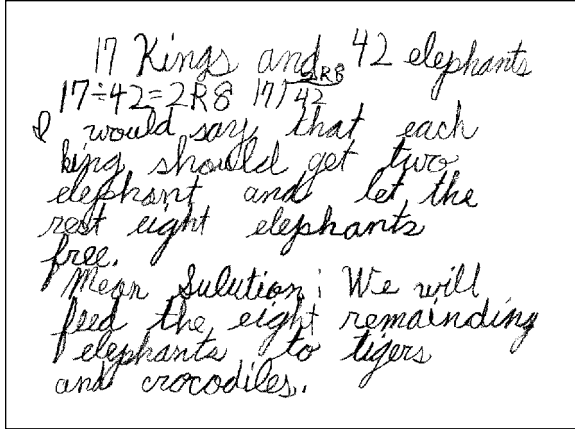 17 Kings and 42 elephants
2R8
17÷42=2R8 17)42
I would say that each
king should get two
elephant and let the
rest eight elephants
free.
Mean Sulution: We will
feed the eight remainding
elephants to tigers
and crocodiles.